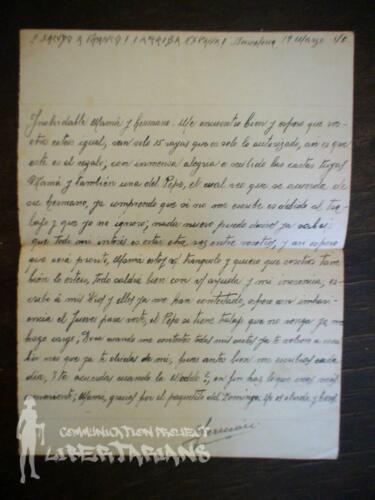 ¡ SALUDO A FRANCO ! ¡ ARRIBA ESPAÑA ! Barcelona 19 Marzo
Inolvidable Mamá y hermano. Me encuentro bien y espero que vos-
otros estéis igual, van solo 15 rayas que es solo lo autorizado, así es que
este es el regalo, con inmensa alegría e recibido las cartas tuyas
Mamá y también una del Pepe, el cual veo que se acuerda de
su hermano, ya comprendo que si no me escribe es debido al tra-
bajo y que yo no ignoro, nada nuevo puedo deciros ya sabéis
que todo mi interés es estar otra vez entre vosotros, y así espero
que será pronto, Mamá estoy tranquilo y quiero que vosotros tam-
bién lo estéis, todo saldrá bien con ayuda y mi inocencia, es-
cribe a mis tíos y ellos ya me han contestado, espero con impa-
ciencia el Jueves para verte, el Pepe si tiene trabajo que no venga ya me
hago cargo, cuando me contestes
que ya te olvidas de mi, pues antes bien me escribías cada
día, te acuerdas cuando la en fin haz lo que creas más
conveniente, Mama, gracias por el paquetito del Domingo.
Germán
COMMUNICATION PROJECT
LIBERTARIANS